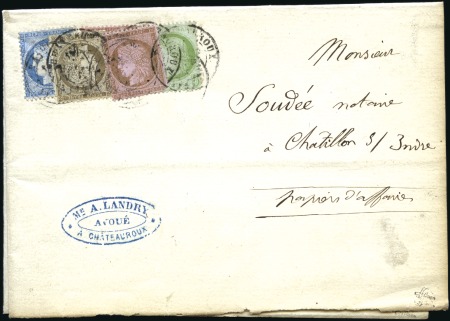 Monsieur
Soudée notaire
à Chatillon s/ Indre
papiers d'affaires
Me A. LANDRY
AVOUÉ
A CHATEAUROUX